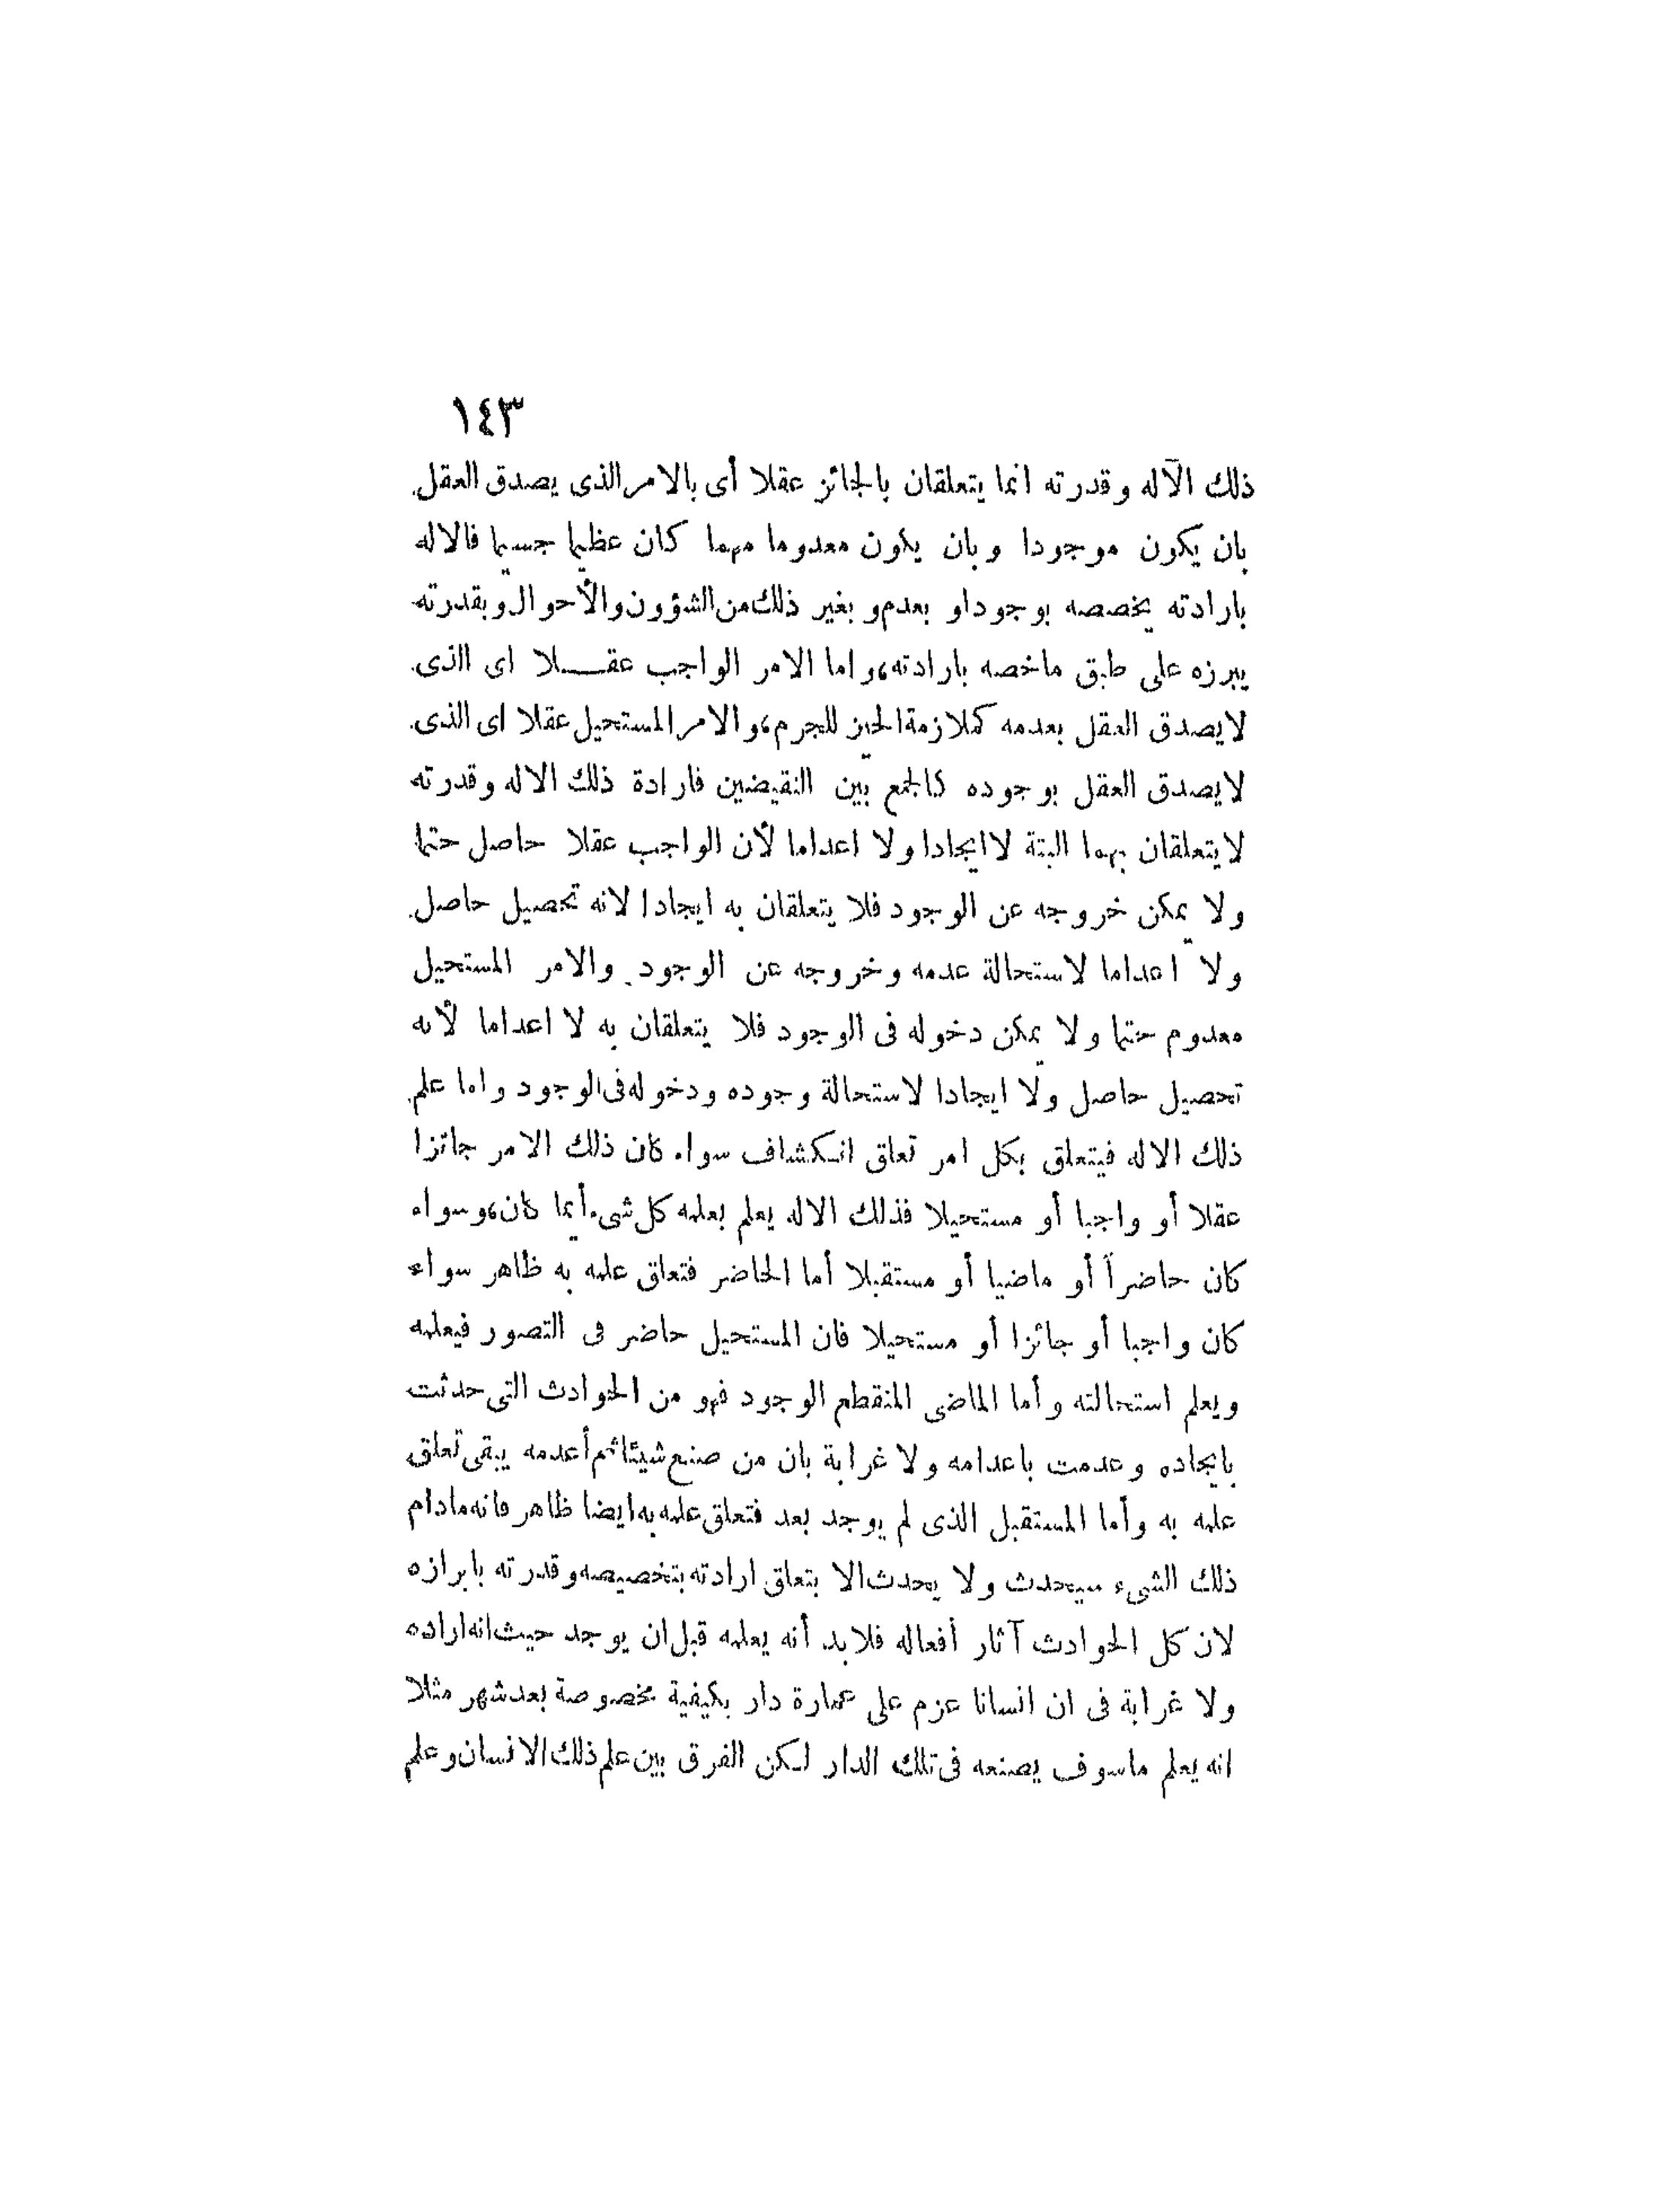 ١٤٣
ذلك الآله وقدرته انما يتعلقان بالجائز عقلا أى بالامر الذى يصدق العقل
بان يكون موجودا وبان يكون معدوما مهما كان عظيما جسيما فالاله
بارادته يخصصه بوجود او بعدم و بغير ذلك من الشؤون والأحوال وبقدرته
يبرزه على طبق ماخصه بارادته، واما الامر الواجب عقلا اى الذى
لايصدق العقل بعدمه كملازمة الحيز للجرم، والامر المستحيل عقلا اى الذى
لايصدق العقل بوجوده كالجمع بين النقيضين فارادة ذلك الاله وقدرته
لايتعلقان بهما البتة لا ايجادا ولا اعداما لأن الواجب عقلا حاصل حتما
ولا يمكن خروجه عن الوجود فلا يتعلقان به ايجادا لانه تحصيل حاصل
ولا اعداما لاستحالة عدمه وخروجه عن الوجود. والامر المستحيل
معدوم حتما ولا يمكن دخوله فى الوجود فلا يتعلقان به لا اعداما لأنه
تحصيل حاصل ولا ايجادا لاستحالة وجوده ودخوله فى الوجود واما علم
ذلك الاله فيتعلق بكل امر تعلق انكشاف سواء كان ذلك الامر جائزا
عقلا أو واجبا أو مستحيلا فذلك الاله يعلم بعلمه كل شىء أيما كان، وسواء
كان حاضراً أو ماضيا أو مستقبلا أما الحاضر فتعلق علمه به ظاهر سواء
كان واجبا أو جائزا أو مستحيلا فان المستحيل حاضر فى التصور فيعلمه
ويعلم استحالته وأما الماضى المنقطع الوجود فهو من الحوادث التى حدثت
بايجاده وعدمت باعدامه ولا غرابة بان من صنع شيئا ثم أعدمه يبقى تعلق
علمه به وأما المستقبل الذى لم يوجد بعد فتعلق علمه به ايضا ظاهر فانه مادام
ذلك الشىء سيحدث ولا يحدث الا بتعلق ارادته بتخصيصه وقدرته بابرازه
لان كل الحوادث آثار أفعاله فلابد أنه يعلمه قبل ان يوجد حيث انه اراده
ولا غرابة فى ان انسانا عزم على عمارة دار بكيفية مخصوصة بعد شهر مثلا
انه يعلم ماسوف يصنعه فى تلك الدار لكن الفرق بين علم ذلك الانسان وعلم